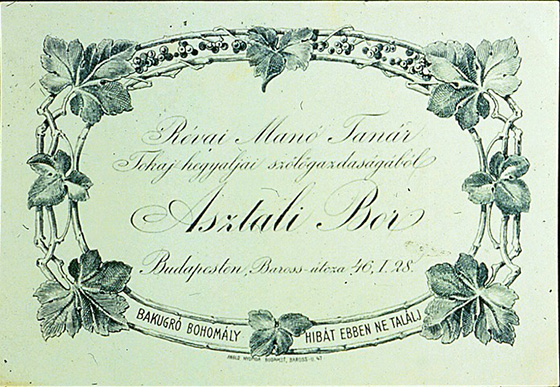 Révai Manó Tanár
Tokaj hegyaljai szőlőgazdaságából
Asztali Bor
Budapesten, Baross-utcza 46, I. 28.
BAKUGRÓ BOHOMÁLY HIBÁT EBBEN NE TALÁLJ
NYOMDA BUDAPEST, BAROSS-U.